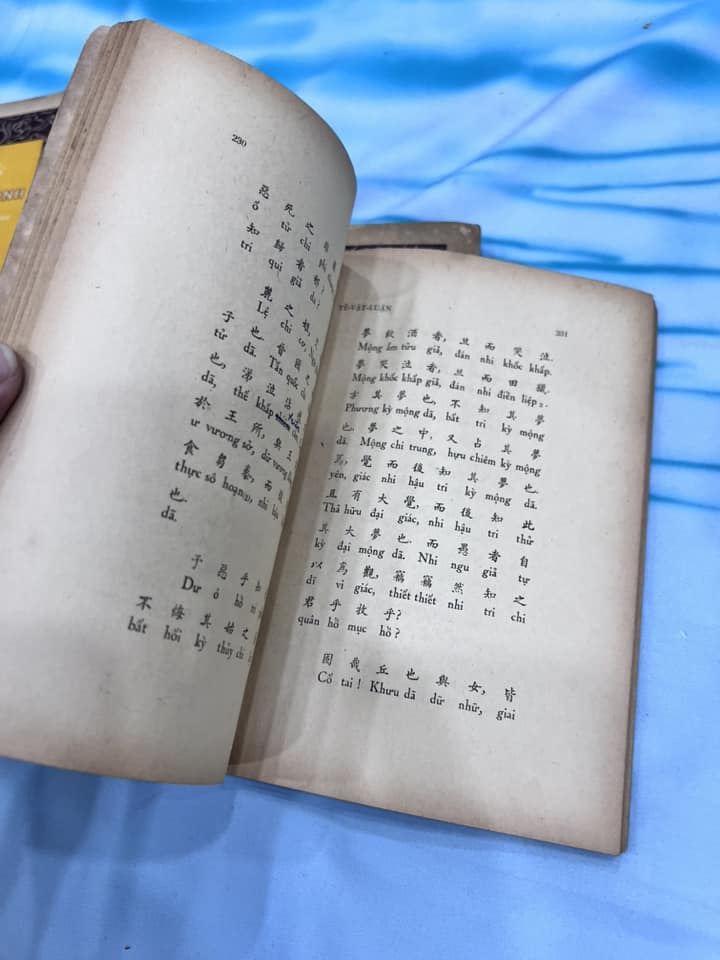 230
惡 死 之
ố tử chi
知 歸 者 邪?
tri qui giả da?
麗 之 姬,
Lệ chi cơ,
子 也. 晉 國 之
tử dã. Tấn quốc chi
也, 涕 泣 沾
dã, thế khấp
於 王 所, 與 王
ư vương sở, dữ vương
食 芻 豢, 而 後
thực sô hoạn(2), nhi hậu
也.
dã.
予 惡 乎 知
Dư ố hồ tri
不 悔 其 始 之
bất hối kỳ thủy chi
TỀ-VẬT-LUẬN 231
夢 飲 酒 者, 旦 而 哭 泣.
Mộng ẩm tửu giả, dán nhi khốc khấp.
夢 哭 泣 者, 旦 而 田 獵.
Mộng khốc khấp giả, dán nhi điền liệp 2.
方 其 夢 也, 不 知 其 夢
Phương kỳ mộng dã, bất tri kỳ mộng
也. 夢 之 中, 又 占 其 夢
dã. Mộng chi trung, hựu chiêm kỳ mộng
焉, 覺 而 後 知 其 夢 也.
yên, giác nhi hậu tri kỳ mộng dã.
且 有 大 覺, 而 後 知 此
Thả hữu dại giác, nhi hậu tri thử
其 大 夢 也. 而 愚 者 自
kỳ dại mộng dã. Nhi ngu giả tự
以 為 觀, 竊 竊 然 知 之
dĩ vi giác, thiết thiết nhi tri chi
君 乎 牧 乎?
quân hồ mục hồ?
固 哉 丘 也 與 女, 皆
Cố tai! Khưu dã dữ nhữ, giai